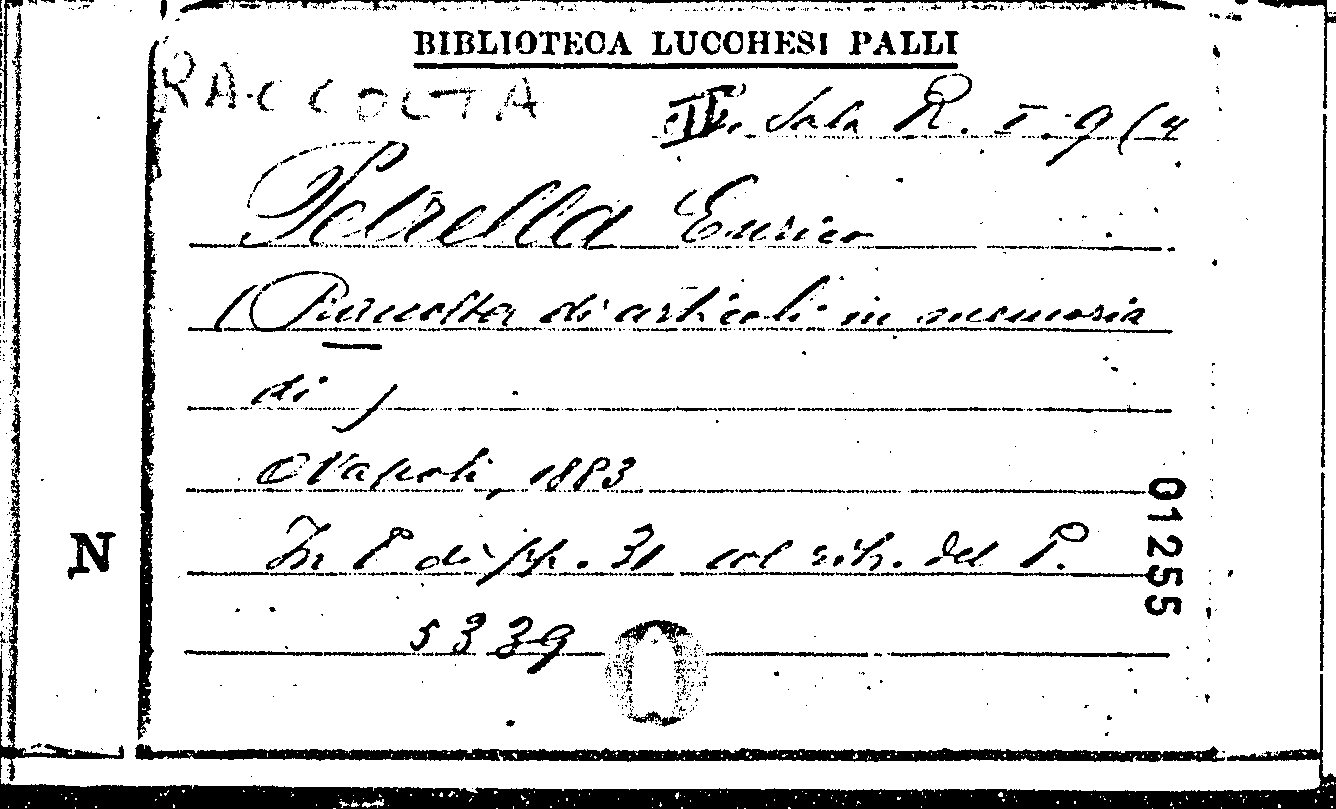 BIBLIOTECA LUCCHESI PALLI
RACCOLTA
IV. Sala R. I. 9 (4
Petrella Enrico
(Raccolta di articoli in memoria
di)
Napoli, 1883
In 8° di pp. 31 col ritr. del P.
N
01255
5339